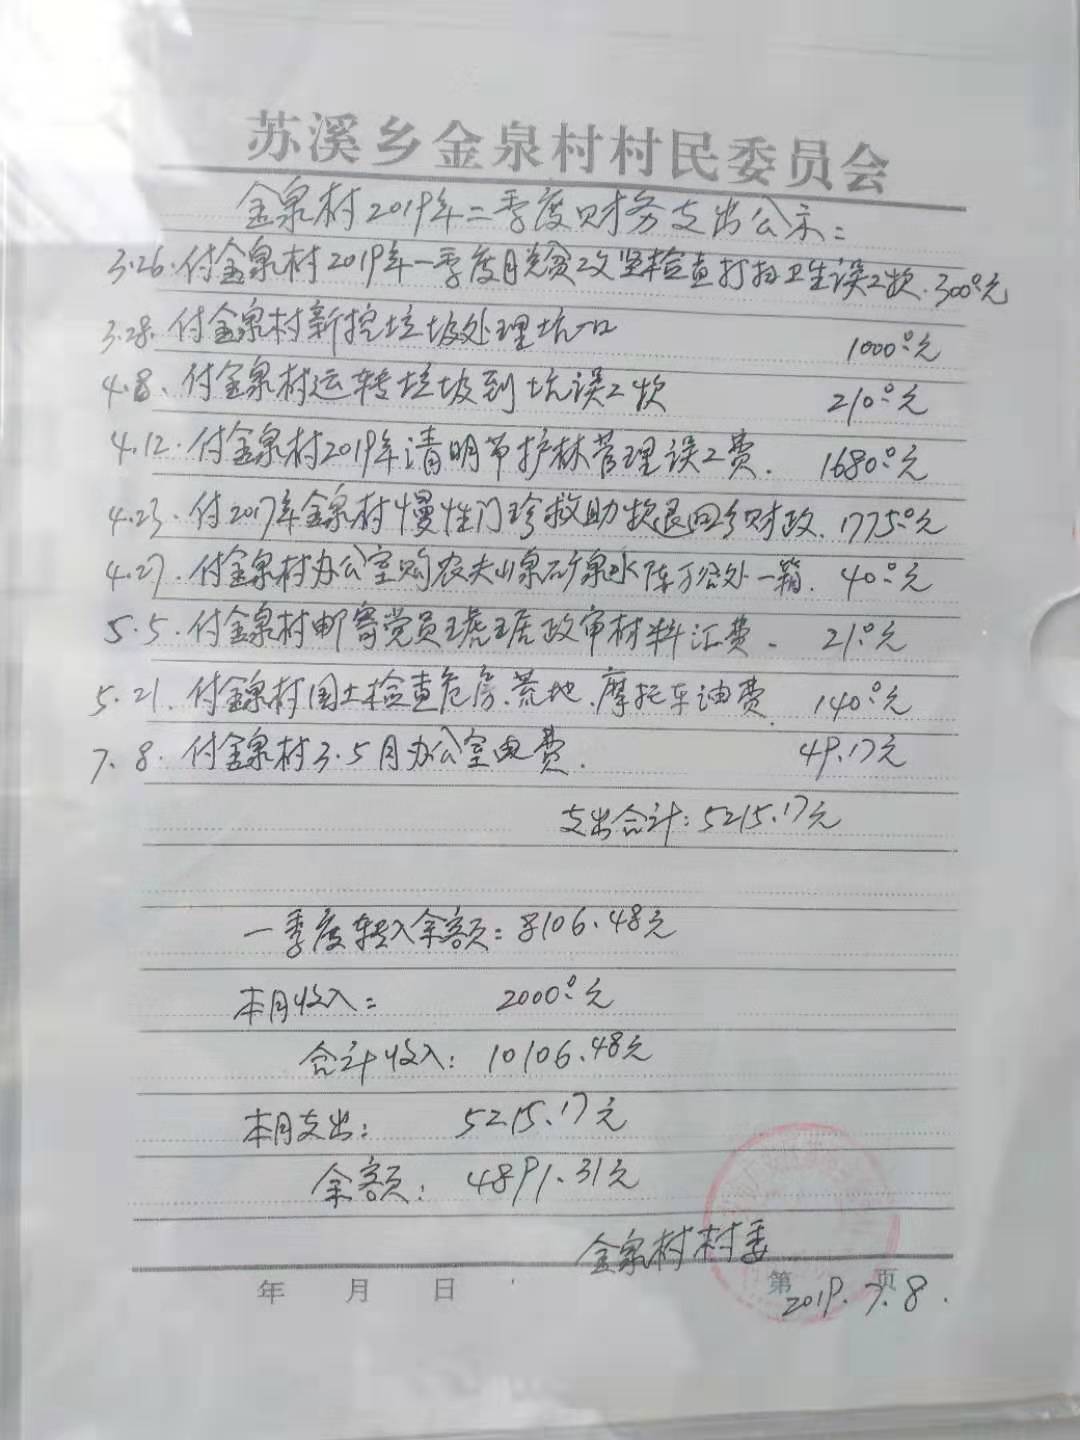 苏溪乡金泉村村民委员会
金泉村2019年二季度财务支出公示:
3.26.付金泉村2019年一季度脱贫攻坚检查打扫卫生误工款.300.0元
3.28.付金泉村新挖垃圾处理坑一口 1000.0元
4.8.付金泉村运转垃圾到坑误工款 210.0元
4.12.付金泉村2019年清明节护林管理误工费. 1680.0元
4.23.付2017年金泉村慢性门珍救助款退回乡财政.1775.0元
4.27.付金泉村办公室购农夫山泉矿泉水陈万谷处一箱. 40.0元
5.5.付金泉村邮寄党员 政审材料汇费. 21.0元
5.21.付金泉村国土检查危房.荒地.摩托车油费 140.0元
7.8.付金泉村3.5月办公室电费. 49.17元
支出合计:5215.17元
一季度转入余额:8106.48元
本月收入: 2000.0元
合计收入:10106.48元
本月支出: 5215.17元
余额: 4891.31元
金泉村村委
年 月 日 第 页
2019.7.8.